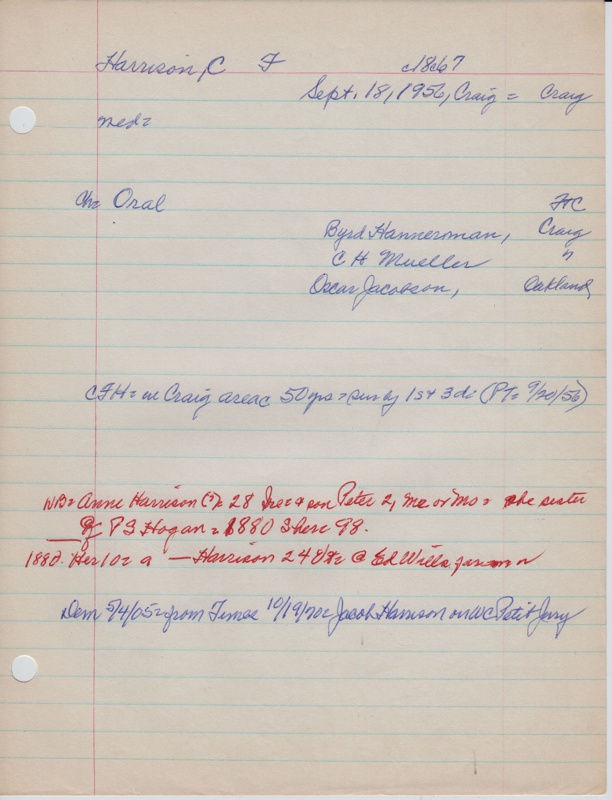 Harrison, C F c1867
Sept. 18, 1956, Craig = Craig
med=
ch= Oral
FHC
Byrd Hannerman, Craig
C H Mueller "
Oscar Jacobson, Oakland,
CFH= in Craig area c 50 yrs = sur by 1s + 3d: (PT= 9/20/56)
WB= Anne Harrison (?)= 28 Ire= + son Peter 2, Me or Mo = she sister
of P S Hogan = 1880 S here 98.
1880. Her 10 = a — Harrison 24 @ Ed Wills farm
Dem 5/4/05= from Times 10/19/ Jacob Harrison on WC Petit Jury